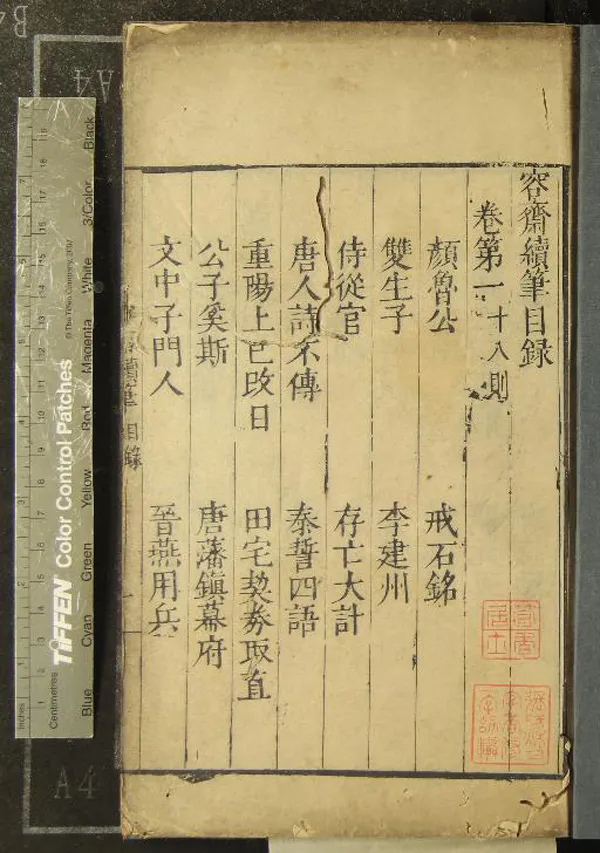 容齋續筆目錄
卷第一 十八則
顏魯公 戒石銘
雙生子 李建州
侍從官 存亡大計
唐人詩不傳 泰誓四語
重陽上巳改日 田宅契券取直
公子奚斯 唐藩鎭幕府
文中子門人 晉燕用兵
續筆 目錄
Inches
Centimetres
TIFFEN Color Control Patches
© The Tiffen Company, 2007
Blue Cyan Green Yellow Red Magenta White 3/Color Black
A4
A4